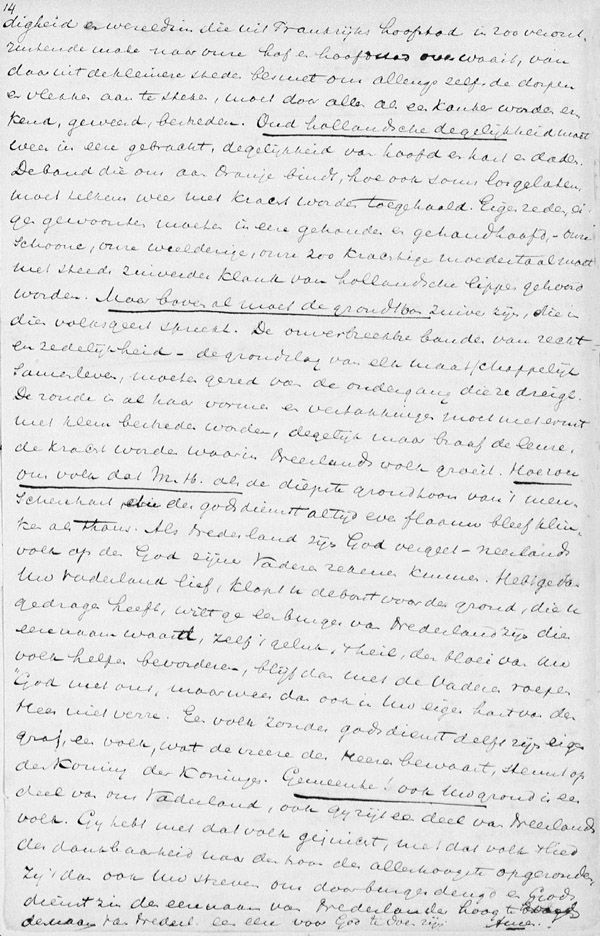 14
digheid en wereldzin die uit Frankrijks hoofdstad in zoo veront-
rustende mate naar onze hof en hoofdstad overwaait, van
daar uit de kleinere steden besmet om allengs zelfs de dorpen
en vlekken aan te steken, moet door allen als een kanker worden er-
kend, geweerd, bestreden. Oud hollandsche degelijkheid moet
weer in eere gebracht, degelijkheid van hoofd en hart en daden.
De band die ons aan Oranje bindt, hoe ook soms losgelaten,
moet telkens weer met kracht worden toegehaald. Eigen zeden, ei-
gen gewoonten moeten in eere gehouden en gehandhaafd, - onze
schoone, onze weelderige, onze zoo krachtige moedertaal moet
met steeds zuiverder klank van hollandsche lippen gehoord
worden. Maar boven al moet de grondtoon zuiver zijn, die in
dien volksgeest spreekt. De onverbreekbre banden van recht
en zedelijkheid - de grondslag van elk maatschappelijk
samenleven, moeten gered van de ondergang die ze dreigt.
De zonde in al haar vormen en vertakkingen moet met ernst
met klem bestreden worden, degelijk maar braaf de leuze,
de kracht worden waarin Neerlands volk groeit. Hoe zou
ons volk dat M.H. als de diepste grondtoon van 't men-
schenhart die der godsdienst altijd even flaauw bleef klin-
ken als thans. Als Nederland zijn God vergeet - Neerlands
volk op den God zijner Vaderen rekenen kunnen. Hebt ge dan
Uw Vaderland lief, klopt u de borst voor den grond, die u
gedragen heeft, wilt ge een burger van Nederland zijn die
een naam waard, zelf 't geluk, 't heil, den bloei van Uw
volk helpen bevorderen, blijf dan met de Vaderen roepen
"God met ons, maar weer dan ook in Uw eigen hart van den
Heer niet verre. Een volk zonder godsdienst delft zijn eigen
graf, een volk, wat de vreeze des Heeren bewaart, steunt op
den Koning der Koningen. Gemeente! ook Uw grond is een
deel van ons Vaderland, ook gij zijt een deel van Neerlands
volk. Gij hebt met dat volk gejuicht, met dat volk 't lied
der dankbaarheid naar den troon des allerhoogsten opgezonden
Zij 't dan ook Uw streven om door burgerdeugd en Gods
dienstzin de eer en naam van Nederland en hoog te
de naam van Nederl. een eere voor God te doen zijn. Amen.